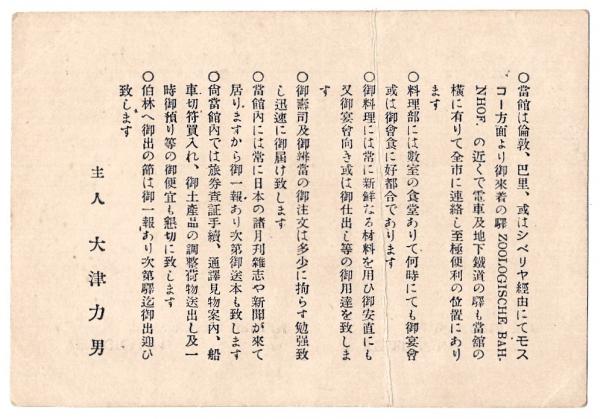 ○當館は倫敦、巴里、或はシベリヤ經由にてモス
コー方面より御來着の驛 ZOOLOGISCHE BAH-
NHOF. の近くで電車及地下鐵道の驛も當館の
橫に有りて全市に連絡し至極便利の位置にあり
ます
○料理部には數室の食堂ありて何時にても御宴會
或は御會食に好都合であります
○御料理には常に新鮮なる材料を用ひ御安直にも
又御宴會向き或は御仕出し等の御用達を致しま
す
○御壽司及御辨當の御注文は多少に拘らす勉强致
し迅速に御屆け致します
○當館內には常に日本の諸月刊雜誌や新聞が來て
居りますから御一報あり次第御送本も致します
○尙當館內では旅券査証手續、通譯見物案內、船
車切符買入れ、御土產品の調整荷物送出し及一
時御預り等の御便宜も懇切に致します
○伯林へ御出の節は御一報あり次第驛迄御出迎ひ
致します
主人 大津力男